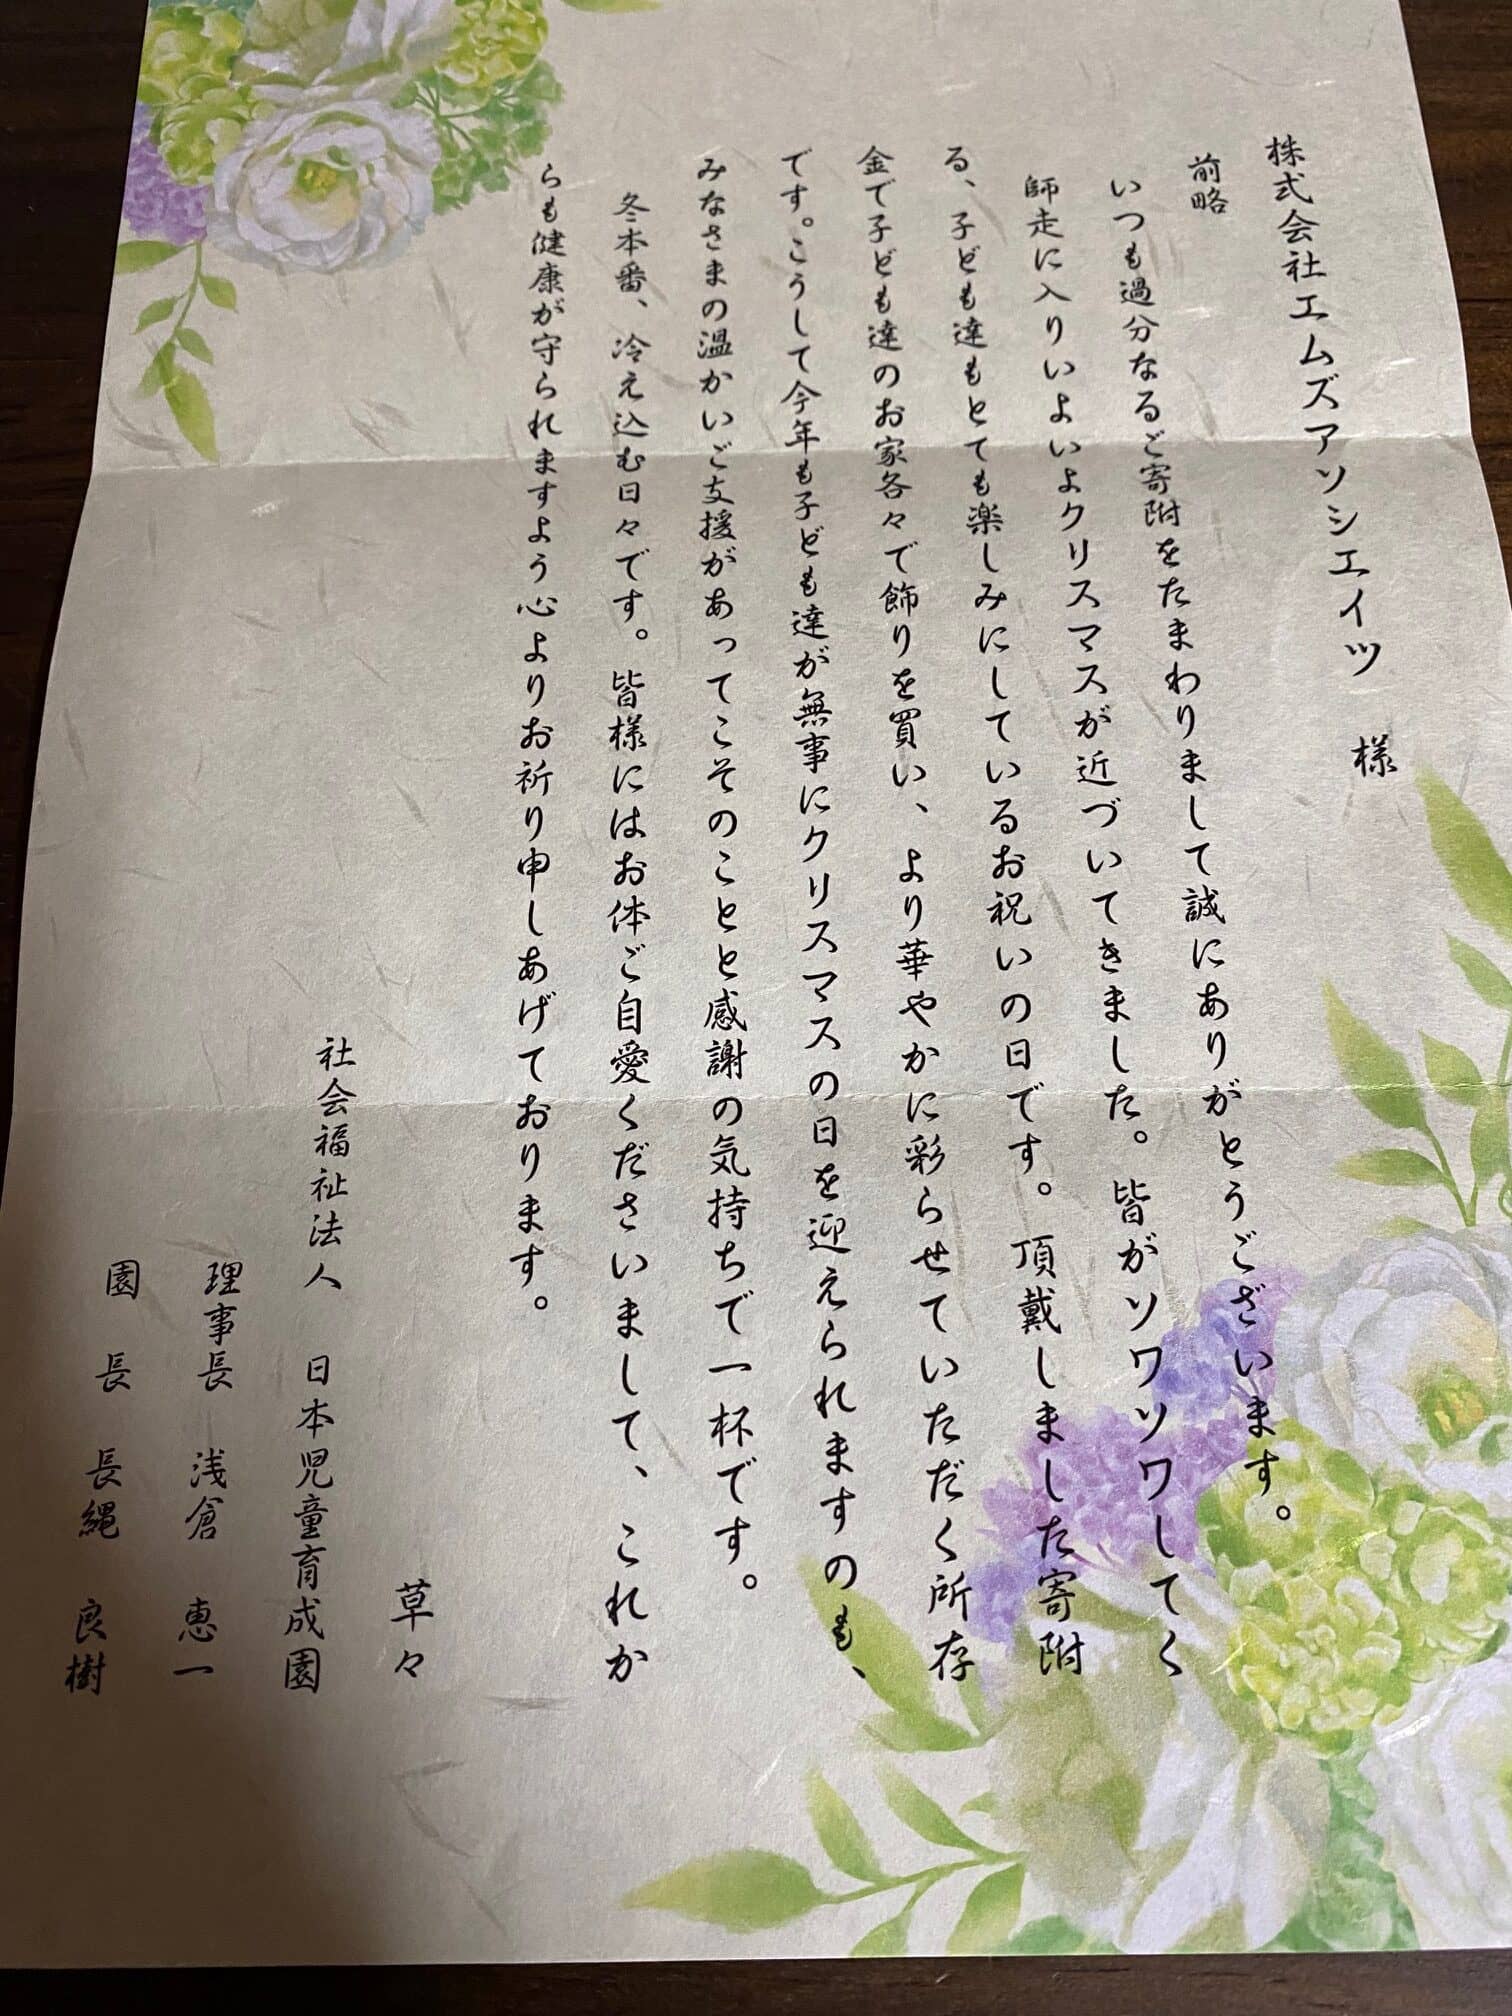 株式会社エムズアソシエイツ 様
前略
いつも過分なるご寄附をたまわりまして誠にありがとうございます。
師走に入りいよいよクリスマスが近づいてきました。皆がソワソワしてく
る、子ども達もとても楽しみにしているお祝いの日です。頂戴しました寄附
金で子ども達のお家各々で飾りを買い、より華やかに彩らせていただく所存
です。こうして今年も子ども達が無事にクリスマスの日を迎えられますのも、
みなさまの温かいご支援があってこそのことと感謝の気持ちで一杯です。
冬本番、冷え込む日々です。皆様にはお体ご自愛くださいまして、これか
らも健康が守られますよう心よりお祈り申しあげております。
草々
社会福祉法人 日本児童育成園
理事長 浅倉 恵一
園長 長縄 良樹